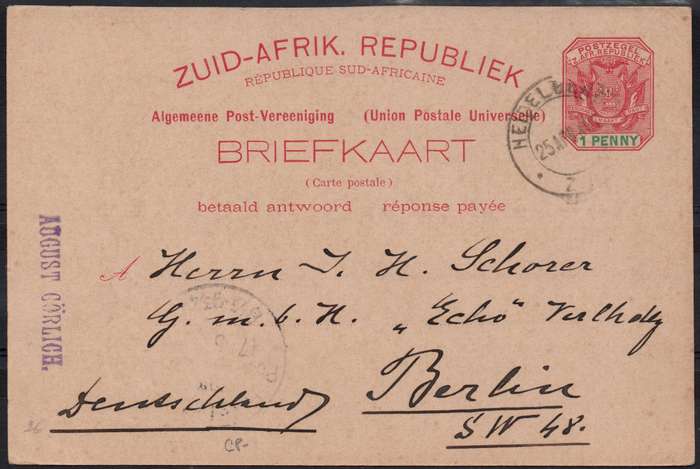 ZUID-AFRIK. REPUBLIEK
RÉPUBLIQUE SUD-AFRICAINE
POSTZEGEL
Z. AFR. REPUBLIEK
1 PENNY
Algemeene Post-Vereeniging (Union Postale Universelle)
BRIEFKAART
(Carte postale)
betaald antwoord réponse payée
25
Z
AUGUST GÖRLICH.
A
Herrn J. H. Schorer
G. m. b. H. „Echo"
Berlin
Deutschland
SW 48.
17
CP-